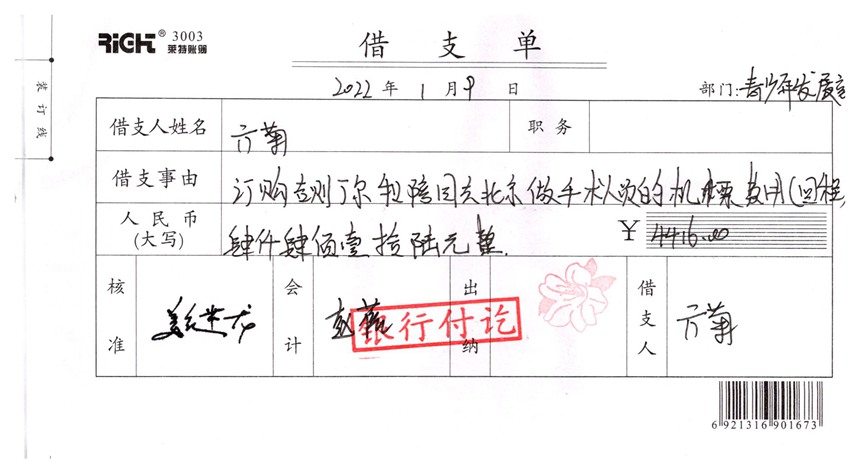 RiGHT® 3003
莱特账簿
借支单
2022年1月9日
部门:青少年发展
装订线
借支人姓名 方菊 职务
借支事由 订购吉则丁尔和陪同去北京做手术人员的机票费用(回程
人民币(大写) 肆仟肆佰壹拾陆元整. ¥ 4416.00
核准 会计 出纳 借支人 方菊
银行付讫
6 921316 901673